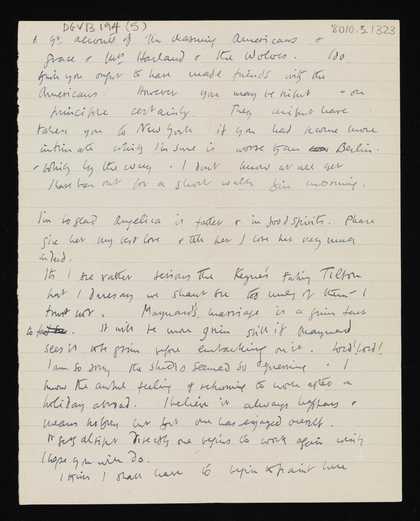 DGVB 194 (5)
8010.5.1323
& yr account of the charming Americans &
grace & Mrs Harland & the Wolves. I do
think you ought to have made friends with the
Americans However you may be right - on
principle certainly. They might have
taken you to New York if you had become more
intimate which I'm sure is worse than Berlin.
& which by the way I don't know at all yet
I have been out for a short walk this morning.
I'm so glad Angelica is fatter & in good spirits. Please
give her my best love & tell her I love her very much
indeed.
Yes I see rather serious the Keynes taking Tilton
but I daresay we shan't see too much of them - I
trust not. Maynard's marriage is a grim fact
to . It will be more grim still if Maynard
sees it to be grim before embarking on it. Lord! Lord!
I am so sorry the studio seemed so depressing. I
know the awful feeling of returning to work after a
holiday abroad. I believe it always happens &
means nothing but that one has enjoyed oneself.
It gets alright directly one begins to work again which
I hope you will do.
I think I shall have to begin to paint here